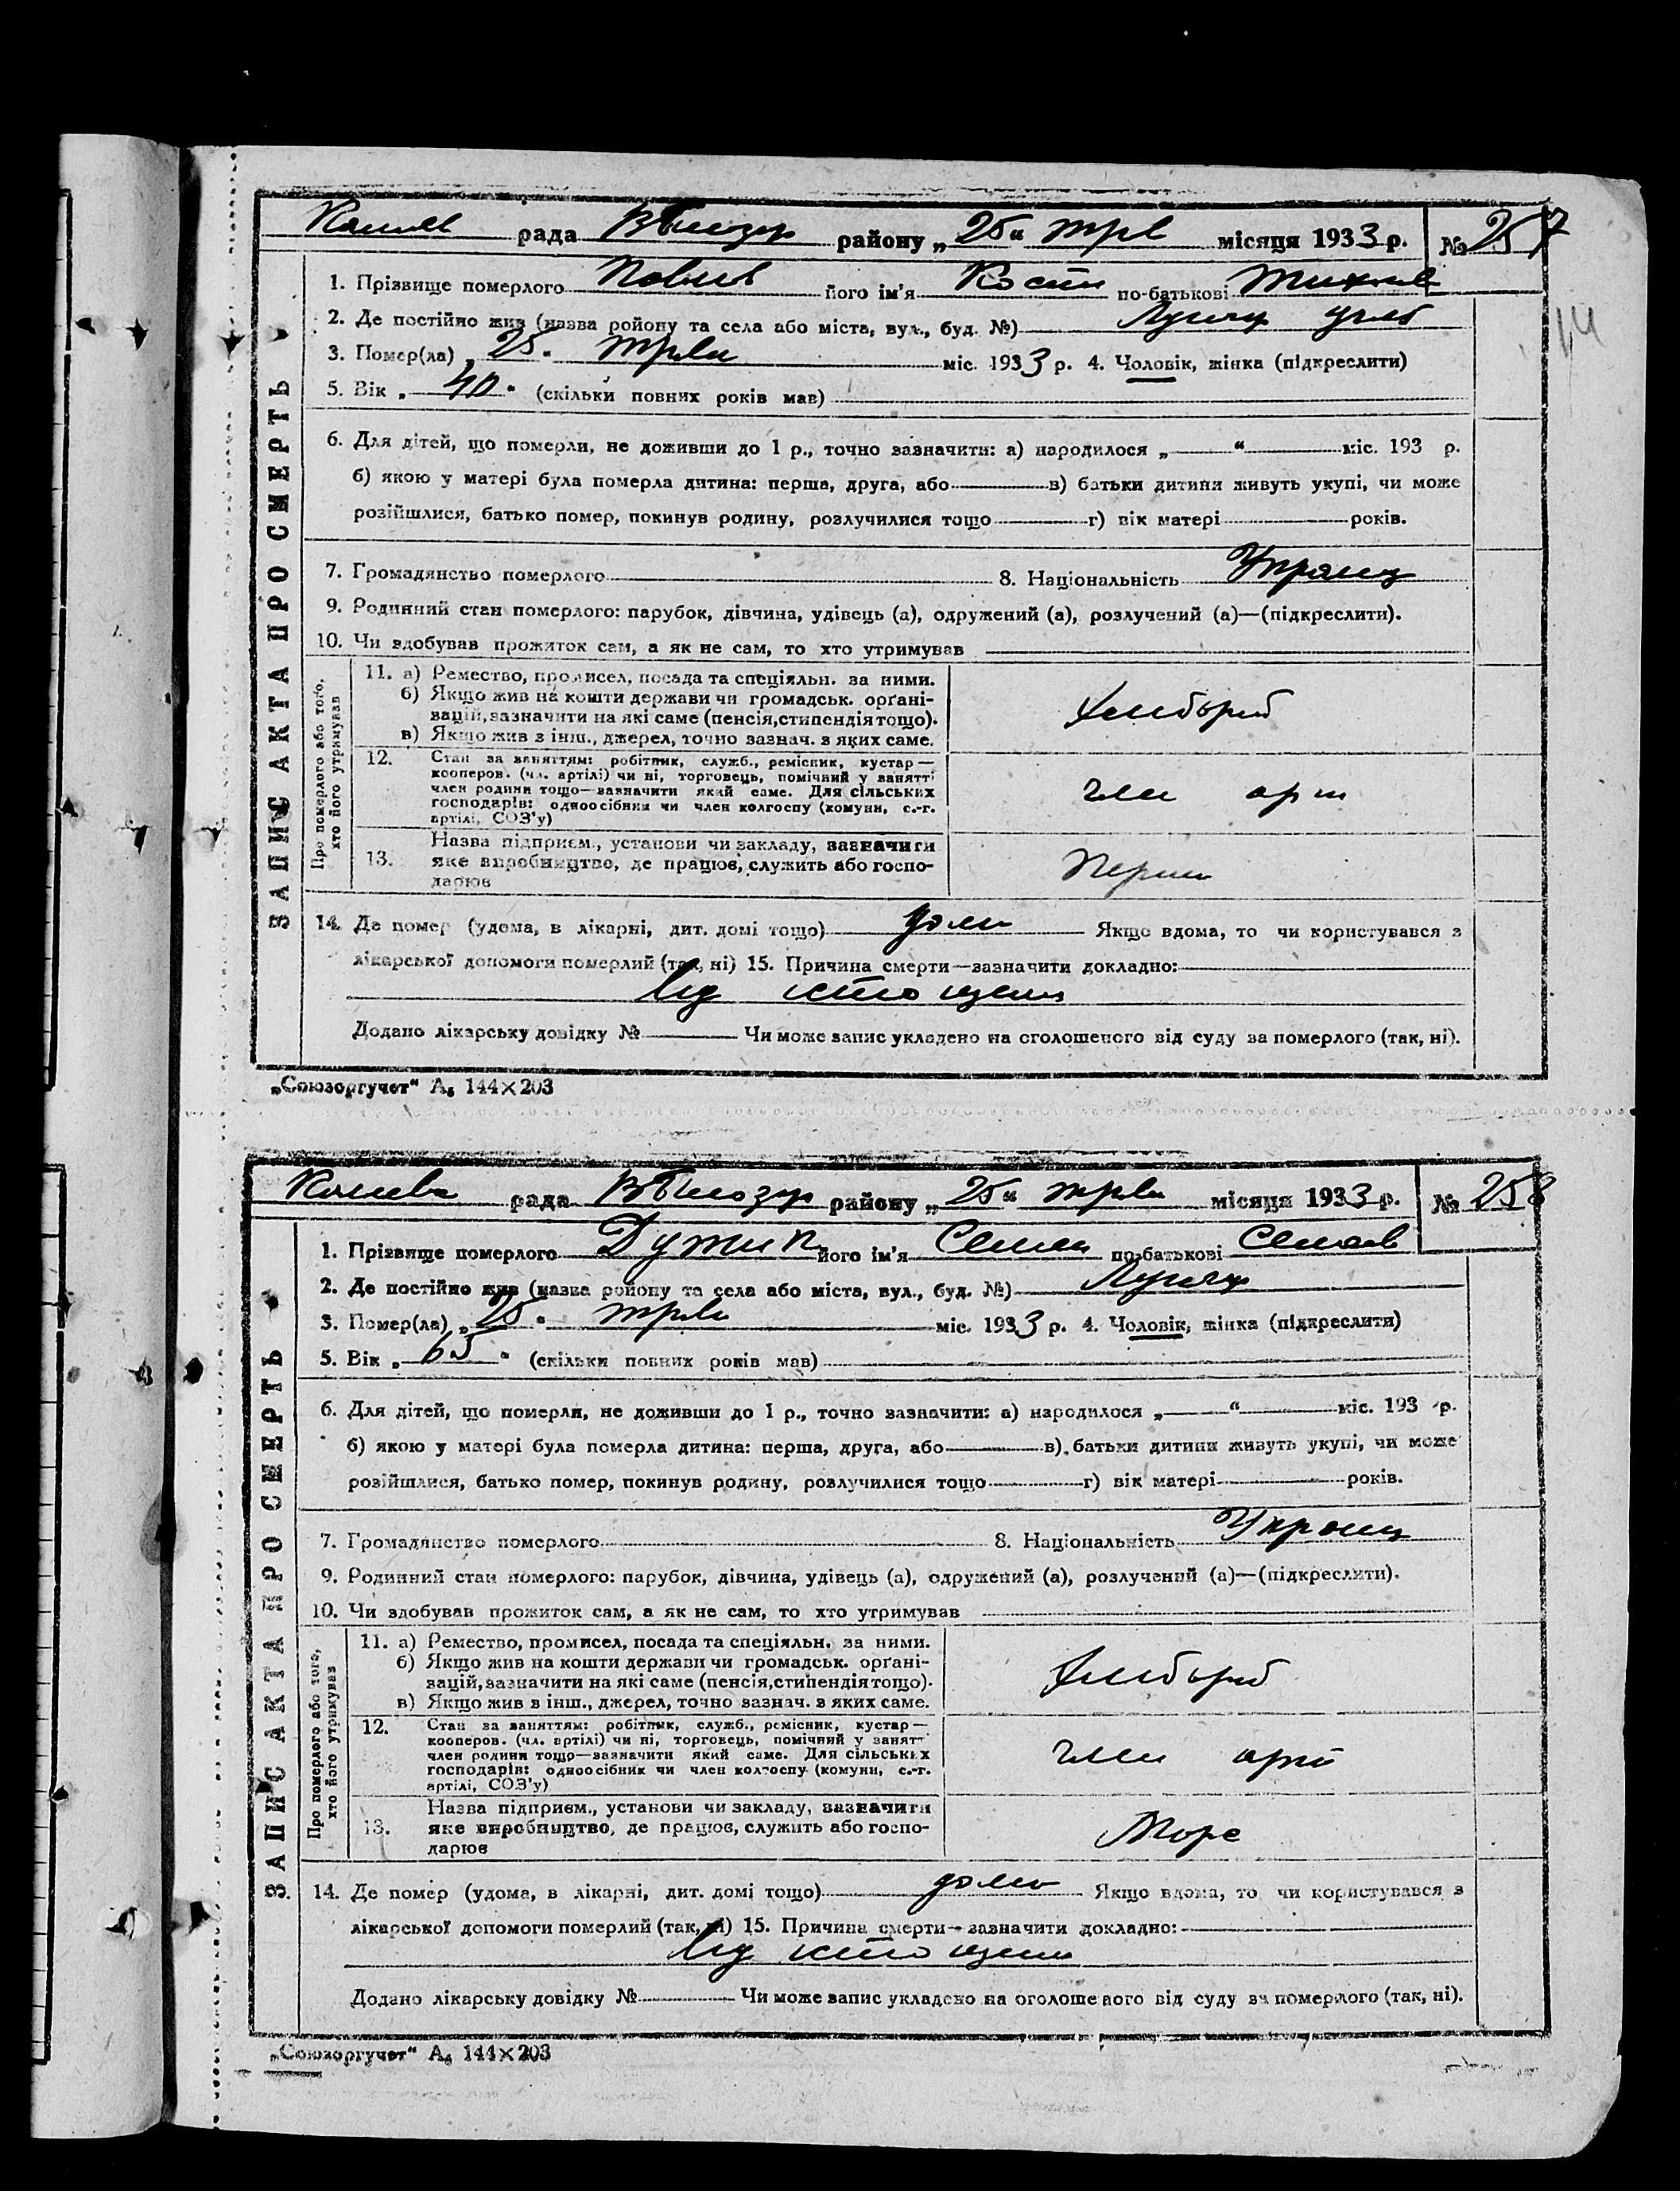 рада В Білозер району „25“ трв місяця 1933 р. № 257
ЗАПИС АКТА ПРО СМЕРТЬ
1. Прізвище померлого його ім'я Кости по-батькові
2. Де постійно жив (назва ройону та села або міста, вул., буд. №)
3. Помер(ла) „25“ трвн міс. 1933 р. 4. Чоловік, жінка (підкреслити)
5. Вік „40“ (скільки повних років мав)
6. Для дітей, що померли, не доживши до 1 р., точно зазначити: а) народилося „ “ міс. 193 р.
б) якою у матері була померла дитина: перша, друга, або в) батьки дитини живуть укупі, чи може
розійшлися, батько помер, покинув родину, розлучилися тощо г) вік матері років.
7. Громадянство померлого 8. Національність Украпнц
9. Родинний стан померлого: парубок, дівчина, удівець (а), одружений (а), розлучений (а)—(підкреслити).
10. Чи здобував прожиток сам, а як не сам, то хто утримував
Про померлого або того, хто його утримував
11. а) Ремество, промисел, посада та спеціяльн. за ними.
б) Якщо жив на кошти держави чи громадськ. орґані-
зацій, зазначити на які саме (пенсія, стипендія тощо).
в) Якщо жив з інш., джерел, точно зазнач. з яких саме.
12. Стан за заняттям: робітник, служб., ремісник, кустар—
кооперов. (чл. артілі) чи ні, торговець, помічний у занятт:
член родини тощо—зазначити який саме. Для сільських
господарів: одноосібник чи член колгоспу (комуни, с.-г.
артілі, СОЗ'у)
член арт
Назва підприєм., установи чи закладу, зазначити
13. яке виробництво, де працює, служить або госпо-
дарює
14. Де помер (удома, в лікарні, дит. домі тощо) дома Якщо вдома, то чи користувався з
лікарської допомоги померлий (так, ні) 15. Причина смерти—зазначити докладно:
Від истощения
Додано лікарську довідку № Чи може запис укладено на оголошеного від суду за померлого (так, ні).
„Союзоргучет“ А₆ 144×203
рада В Білозер району „25“ трвн місяця 1933 р. № 258
ЗАПИС АКТА ПРО СМЕРТЬ
1. Прізвище померлого його ім'я Семен по-батькові
2. Де постійно жив (назва ройону та села або міста, вул., буд. №)
3. Помер(ла) „25“ трвн міс. 1933 р. 4. Чоловік, жінка (підкреслити)
5. Вік „65“ (скільки повних років мав)
6. Для дітей, що померли, не доживши до 1 р., точно зазначити: а) народилося „ “ міс. 193 р.
б) якою у матері була померла дитина: перша, друга, або в) батьки дитини живуть укупі, чи може
розійшлися, батько помер, покинув родину, розлучилися тощо г) вік матері років.
7. Громадянство померлого 8. Національність Украпнц
9. Родинний стан померлого: парубок, дівчина, удівець (а), одружений (а), розлучений (а)—(підкреслити).
10. Чи здобував прожиток сам, а як не сам, то хто утримував
Про померлого або того, хто його утримував
11. а) Ремество, промисел, посада та спеціяльн. за ними.
б) Якщо жив на кошти держави чи громадськ. орґані-
зацій, зазначити на які саме (пенсія, стипендія тощо).
в) Якщо жив в інш., джерел, точно зазнач. в яких саме.
12. Стан за заняттям: робітник, служб., ремісник, кустар—
кооперов. (чл. артілі) чи ні, торговець, помічний у занятт
член родини тощо—зазначити який саме. Для сільських
господарів: одноосібник чи член колгоспу (комуни, с.-г.
артілі, СОЗ'у)
член арт
Назва підприєм., установи чи закладу, зазначити
13. яке виробництво, де працює, служить або госпо-
дарює
14. Де помер (удома, в лікарні, дит. домі тощо) дома Якщо вдома, то чи користувався з
лікарської допомоги померлий (так, ні) 15. Причина смерти—зазначити докладно:
Від истощени
Додано лікарську довідку № Чи може запис укладено на оголошеного від суду за померлого (так, ні).
„Союзоргучет“ А₆ 144×203